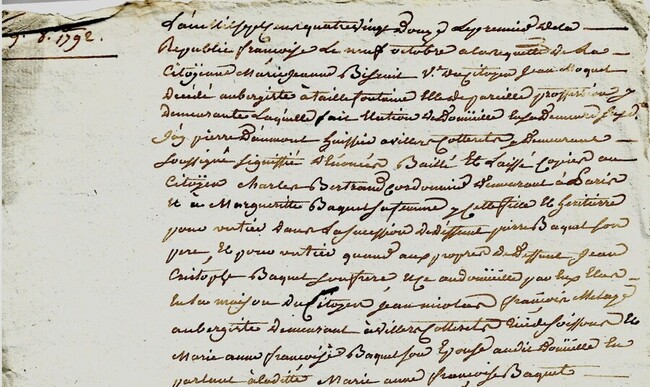 9. 8. 1792.
L'an mil sept cens quatre vingt Douze Le premier de la
Republic francoise Le neuf octobre a la requette De La
Citoyenne Marie Jeanne Bis Vve. Du Citoyen Jean Moquet
Décédé aubergiste à taillefontaine Elle de pareille proffession y
demeurante Laquelle fait Election de Domicille En sa Demeure
Jay pierre Daumont huissier a villers Cotterets y Demeurant
Soussigné signiffié Dénoncée Baillé Et Laissé Copie au
Citoyen Charles Bertrand Cordonnier Demeurant à Paris
Et à Marguerite Baquet sa femme y Cette fille Et heritierre
pour partie Dans La succession De Deffunt pierre Baquet son
pere, Et pour partie quand aux propres De Deffunt Jean
Cristophe Baquet son frere, Et ce au domicille par Eux Elus
En la maison Du Citoyen Jean nicolas françois
aubergiste Demeurant à Villers Cotterets de Soissons Et
Marie anne francoise Baquet son Epouse audit Domicille En
parlant à ladite Marie anne francoise Baquet